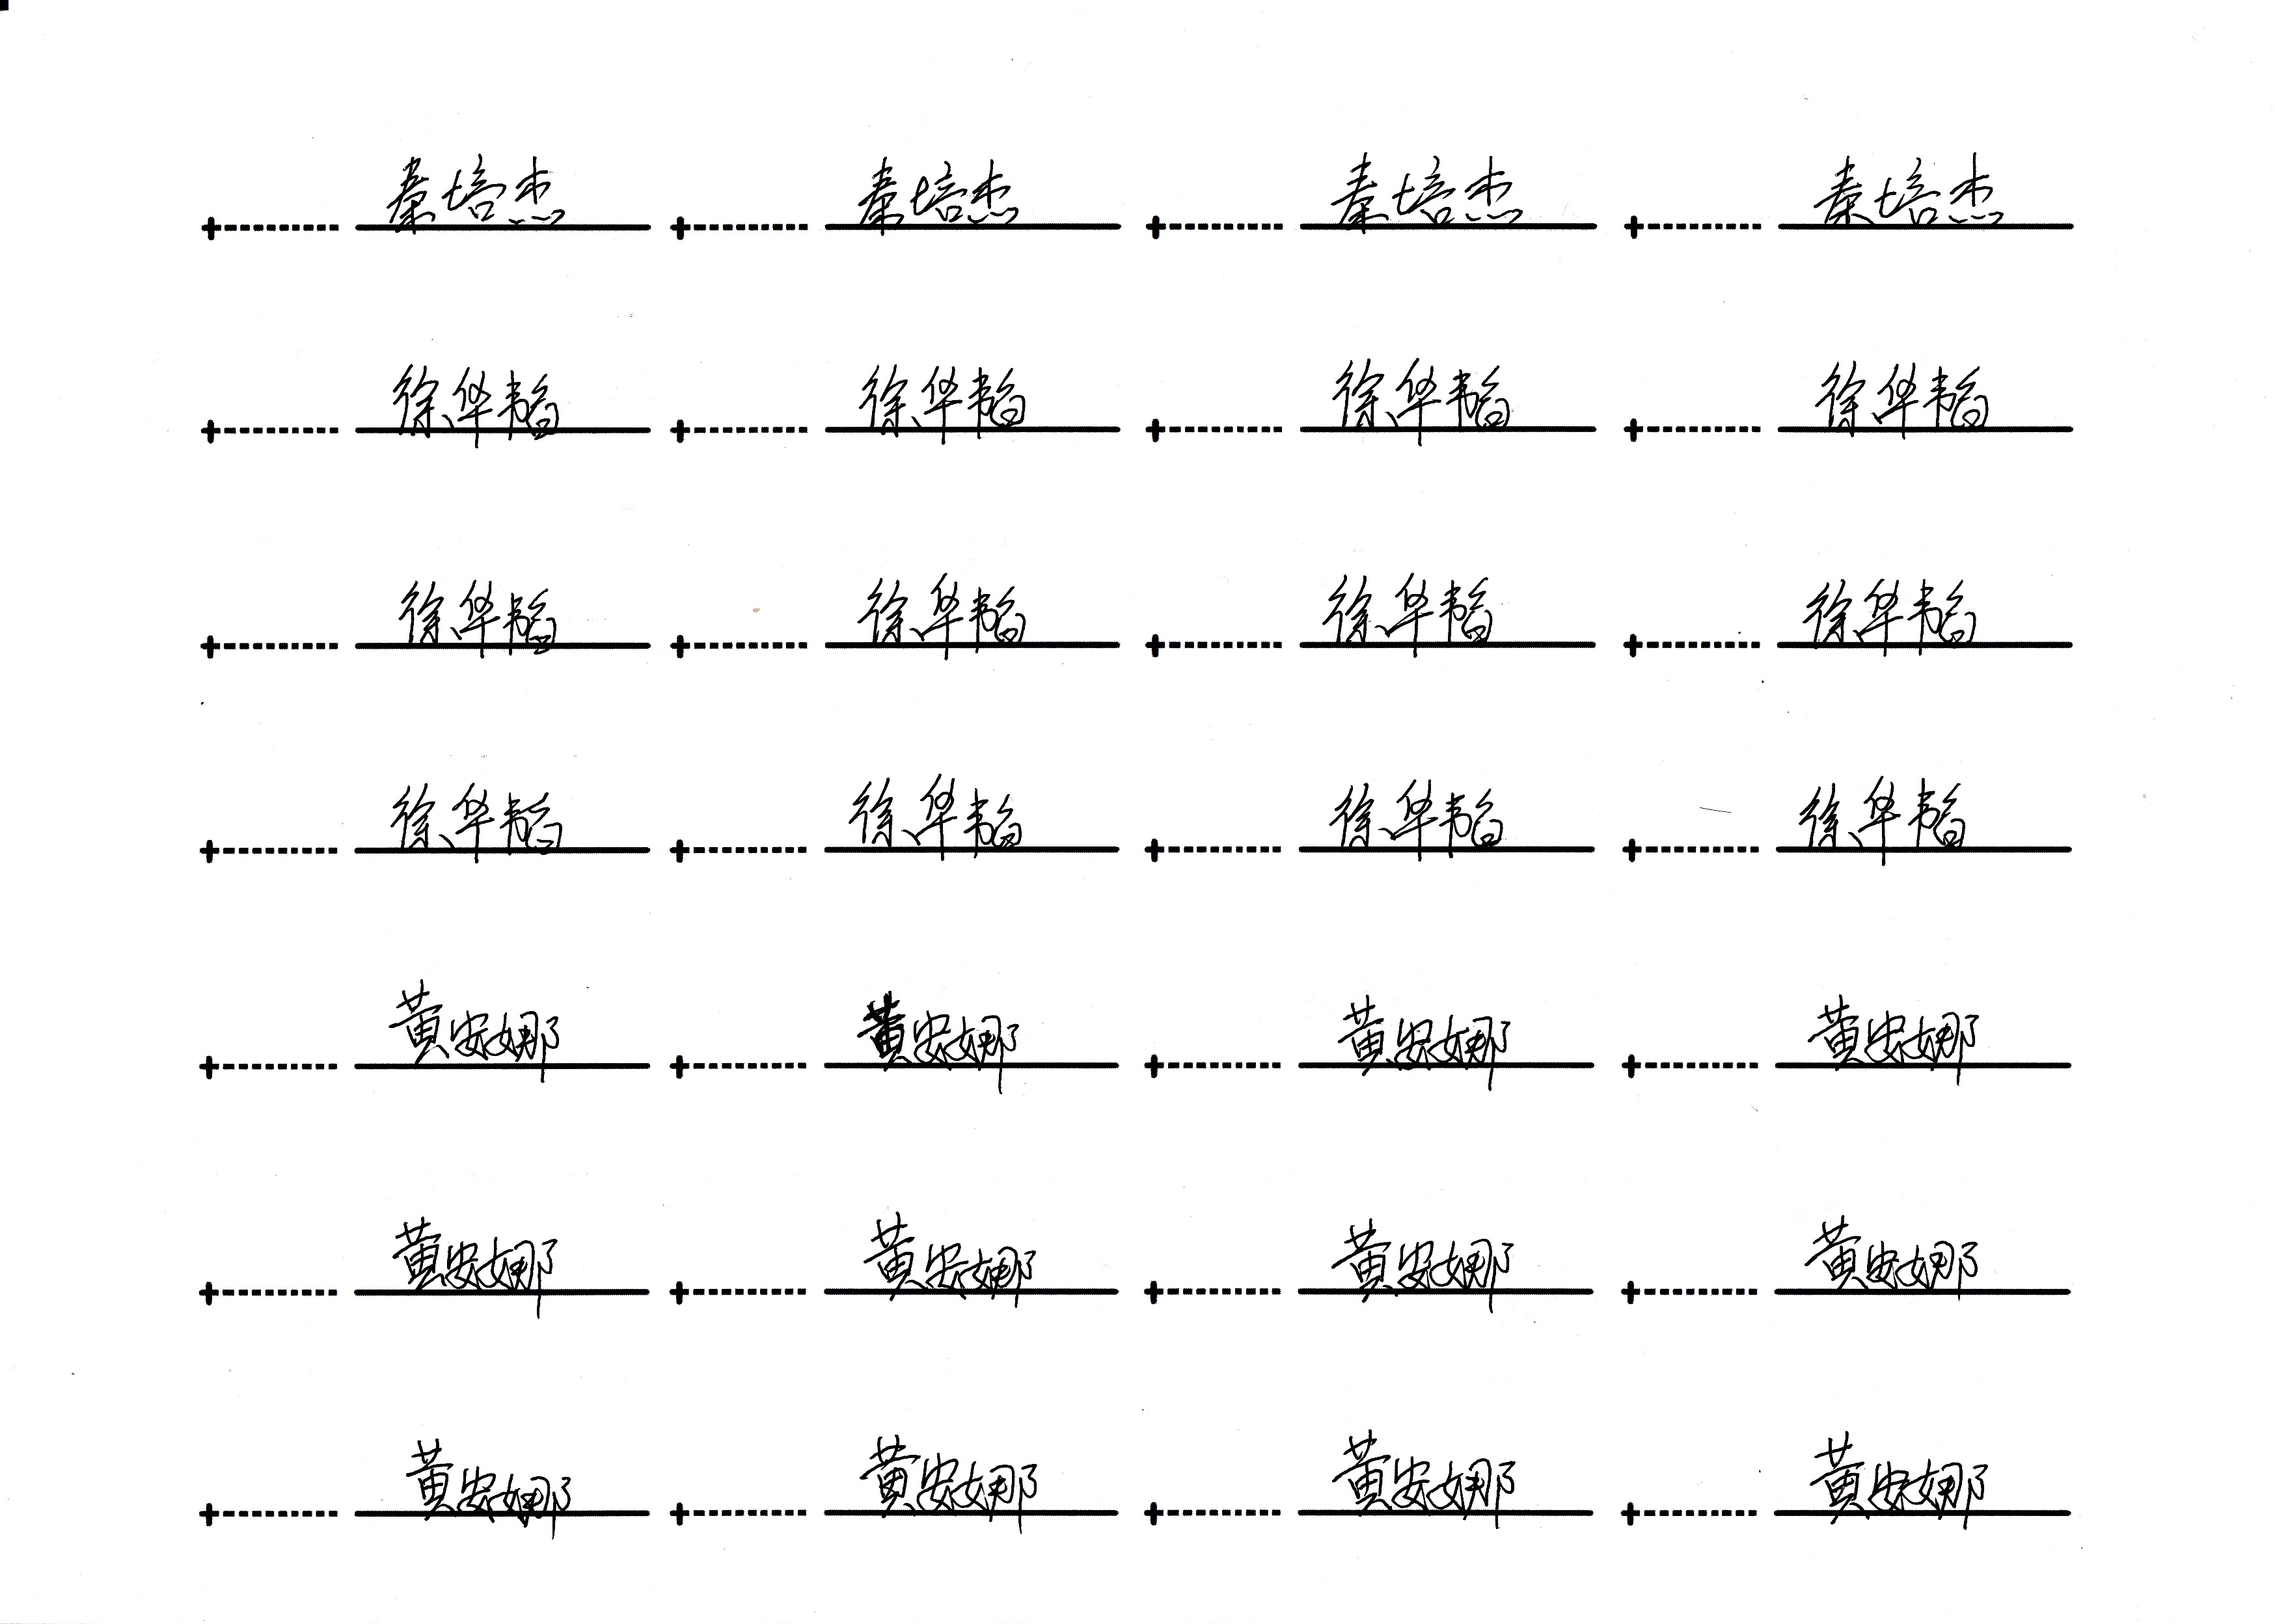 秦培杰 秦培杰 秦培杰 秦培杰
徐华韬 徐华韬 徐华韬 徐华韬
徐华韬 徐华韬 徐华韬 徐华韬
徐华韬 徐华韬 徐华韬 徐华韬
黄安娜 黄安娜 黄安娜 黄安娜
黄安娜 黄安娜 黄安娜 黄安娜
黄安娜 黄安娜 黄安娜 黄安娜